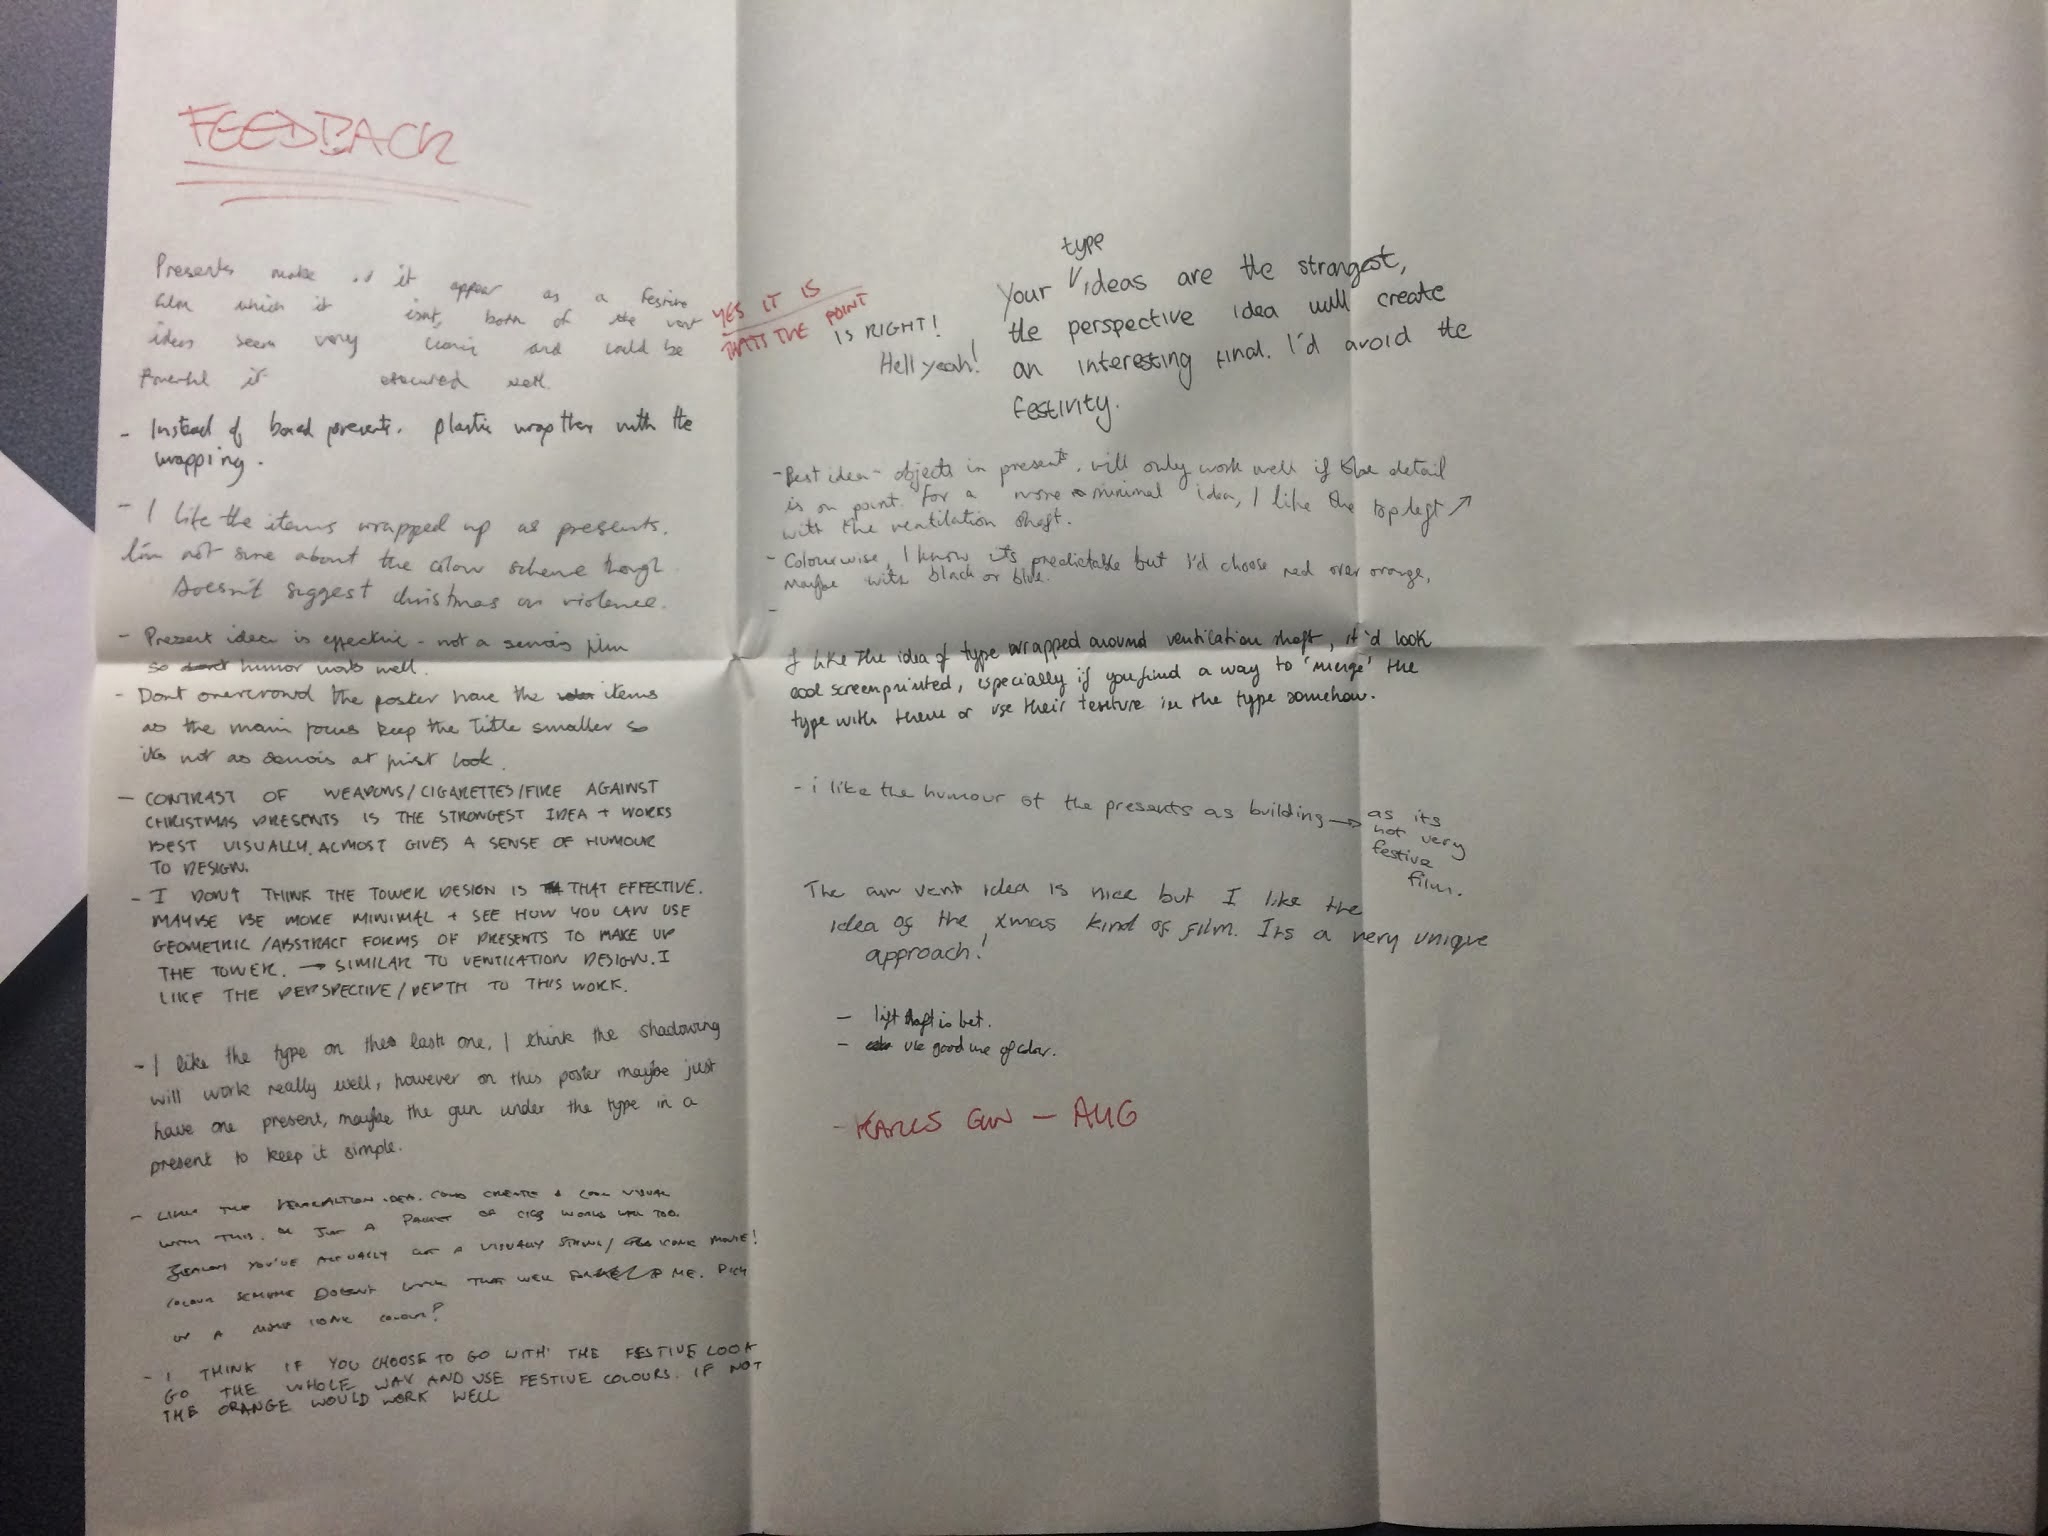 FEEDBACK
Presents make it appear as a festive
film which it isnt, both of the vent
ideas seem very iconic and could be
Powerful if executed well.
YES IT IS
THATS THE POINT
IS RIGHT!
Hell yeah!
- Instead of boxed presents. plastic wrap then with the
wrapping.
- I like the items wrapped up as presents.
I'm not sure about the colour scheme though.
Doesn't suggest christmas or violence.
- Present idea is effective - not a serious film
so humor works well.
- Dont overcrowd the poster have the items
as the main focus keep the title smaller so
its not as obvious at first look.
- CONTRAST OF WEAPONS/CIGARETTES/FIRE AGAINST
CHRISTMAS PRESENTS IS THE STRONGEST IDEA + WORKS
BEST VISUALLY. ALMOST GIVES A SENSE OF HUMOUR
TO DESIGN.
- I DON'T THINK THE TOWER DESIGN IS THAT EFFECTIVE.
MAYBE USE MORE MINIMAL + SEE HOW YOU CAN USE
GEOMETRIC/ABSTRACT FORMS OF PRESENTS TO MAKE UP
THE TOWER. → SIMILAR TO VENTILATION DESIGN. I
LIKE THE PERSPECTIVE/DEPTH TO THIS WORK.
- I like the type on the last one, I think the shadowing
will work really well, however on this poster maybe just
have one present, maybe the gun under the type in a
present to keep it simple.
- LIKE THE VENTILATION IDEA. COULD CREATE A COOL VISUAL
WITH THIS. OR JUST A PACKET OF CIGS WORKS WELL TOO.
YOU'VE ACTUALLY GOT A VISUALLY STRONG/ ICONIC MOVIE!
COLOUR SCHEME DOESN'T WORK THAT WELL FOR ME. PICK
UP A MORE ICONIC COLOUR?
- I THINK IF YOU CHOOSE TO GO WITH THE FESTIVE LOOK
GO THE WHOLE WAY AND USE FESTIVE COLOURS. IF NOT
THE ORANGE WOULD WORK WELL
type
Your ideas are the strongest,
the perspective idea will create
an interesting final. I'd avoid the
festivity.
- Best idea - objects in present, will only work well if the detail
is on point. For a more minimal idea, I like the top left ↗
with the ventilation shaft.
- Colourwise, I know its predictable but I'd choose red over orange,
maybe with black or blue.
-
I like the idea of type wrapped around ventilation shaft, it'd look
cool screenprinted, especially if you find a way to 'merge' the
type with them or use their texture in the type somehow.
- i like the humour of the presents as building → as its
not very
festive
film.
The air vent idea is nice but I like the
idea of the xmas kind of film. Its a very unique
approach!
- lift shaft is best.
- use good use of colour.
- KARLS GUN - AUG